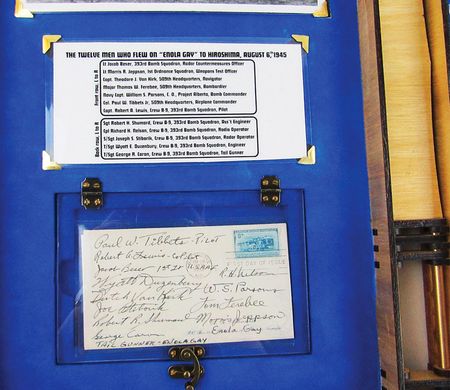 THE TWELVE MEN WHO FLEW ON "ENOLA GAY" TO HIROSHIMA, AUGUST 6th, 1945
Front row, L to R
Lt Jacob Beser, 393rd Bomb Squadron, Radar Countermeasures Officer
Lt Morris R. Jeppson, 1st Ordnance Squadron, Weapons Test Officer
Capt. Theodore J. Van Kirk, 509th Headquarters, Navigator
Major Thomas W. Ferebee, 509th Headquarters, Bombardier
Navy Capt. William S. Parsons, C. O., Project Alberta, Bomb Commander
Col. Paul W. Tibbets Jr, 509th Headquarters, Airplane Commander
Capt. Robert A. Lewis, Crew B-9, 393rd Bomb Squadron, Pilot
Back row, L to R
Sgt Robert H. Shumard, Crew B-9, 393rd Bomb Squadron, Ass't Engineer
Cpl Richard H. Nelson, Crew B-9, 393rd Bomb Squadron, Radio Operator
S/Sgt Joseph S. Stiborik, Crew B-9, 393rd Bomb Squadron, Radar Operator
T/Sgt Wyatt E. Duzenbury, Crew B-9, 393rd Bomb Squadron, Engineer
T/Sgt George R. Caron, Crew B-9, 393rd Bomb Squadron, Tail Gunner
Paul W. Tibbets - Pilot
Robert A. Lewis - CoPilot
FIRST DAY OF ISSUE
Jacob Beser 1st Lt USAAF
R. H. Nelson
Wyatt Duzenbury
W. S. Parsons
Dutch Van Kirk
Tom Ferebee
Joe Stiborik
Robert R. Shumard
Morris Jeppson
Enola Gay
George Caron
TAIL GUNNER - ENOLA GAY